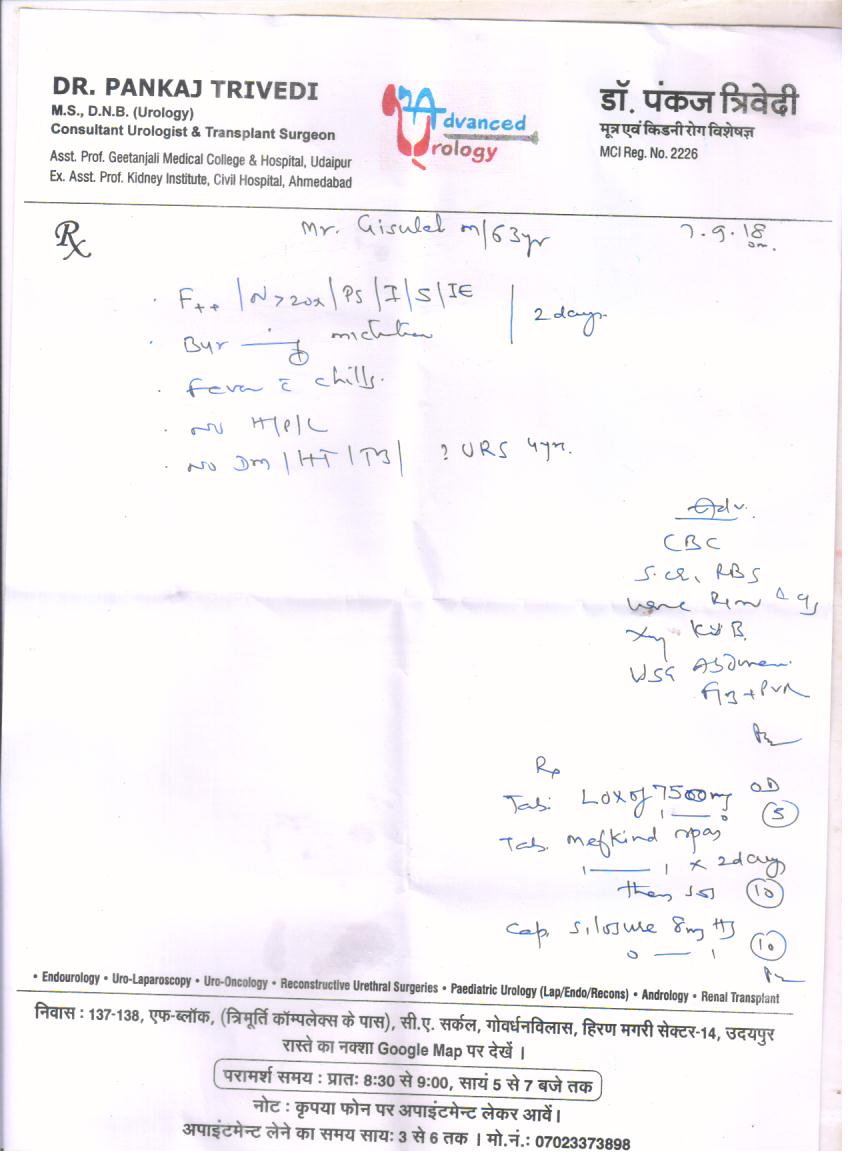 DR. PANKAJ TRIVEDI
M.S., D.N.B. (Urology)
Consultant Urologist & Transplant Surgeon
Asst. Prof. Geetanjali Medical College & Hospital, Udaipur
Ex. Asst. Prof. Kidney Institute, Civil Hospital, Ahmedabad
Advanced
Urology
डॉ. पंकज त्रिवेदी
मूत्र एवं किडनी रोग विशेषज्ञ
MCI Reg. No. 2226
Rx
Mr. Gisulal m/63yr
7.9.18
F++ / N > 20x / PS / I / S / IE
2 days
micturition
Fever c̄ chills.
No H/P/L
No Dm / HT / TB / ? URS 4yr.
Adv.
CBC
S. cr, RBS
Urine R/m
Xray KUB.
USG Abdomen
+ PVR
Rp
Tab. Loxof 7500mg OD
1 — 0 (5)
Tab. mefkind spas
1 — 1 x 2 days
then SOS (10)
Cap. silosure 8mg HS
0 — 1 (10)
• Endourology • Uro-Laparoscopy • Uro-Oncology • Reconstructive Urethral Surgeries • Paediatric Urology (Lap/Endo/Recons) • Andrology • Renal Transplant
निवास : 137-138, एफ-ब्लॉक, (त्रिमूर्ति कॉम्पलेक्स के पास), सी.ए. सर्कल, गोवर्धनविलास, हिरण मगरी सेक्टर-14, उदयपुर
रास्ते का नक्शा Google Map पर देखें ।
परामर्श समय : प्रातः 8:30 से 9:00, सायं 5 से 7 बजे तक
नोट : कृपया फोन पर अपाइंटमेन्ट लेकर आवें।
अपाइंटमेन्ट लेने का समय सायः 3 से 6 तक । मो.नं.: 07023373898